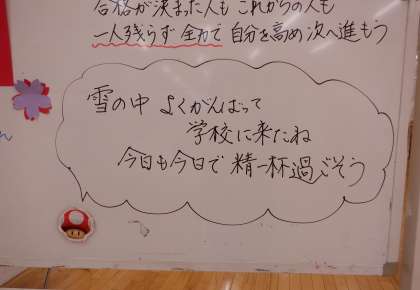 合格が決まった人も これからの人も
一人残らず 全力で 自分を高め 次へ進もう
雪の中 よくがんばって
学校に来たね
今日も今日で 精一杯過ごそう